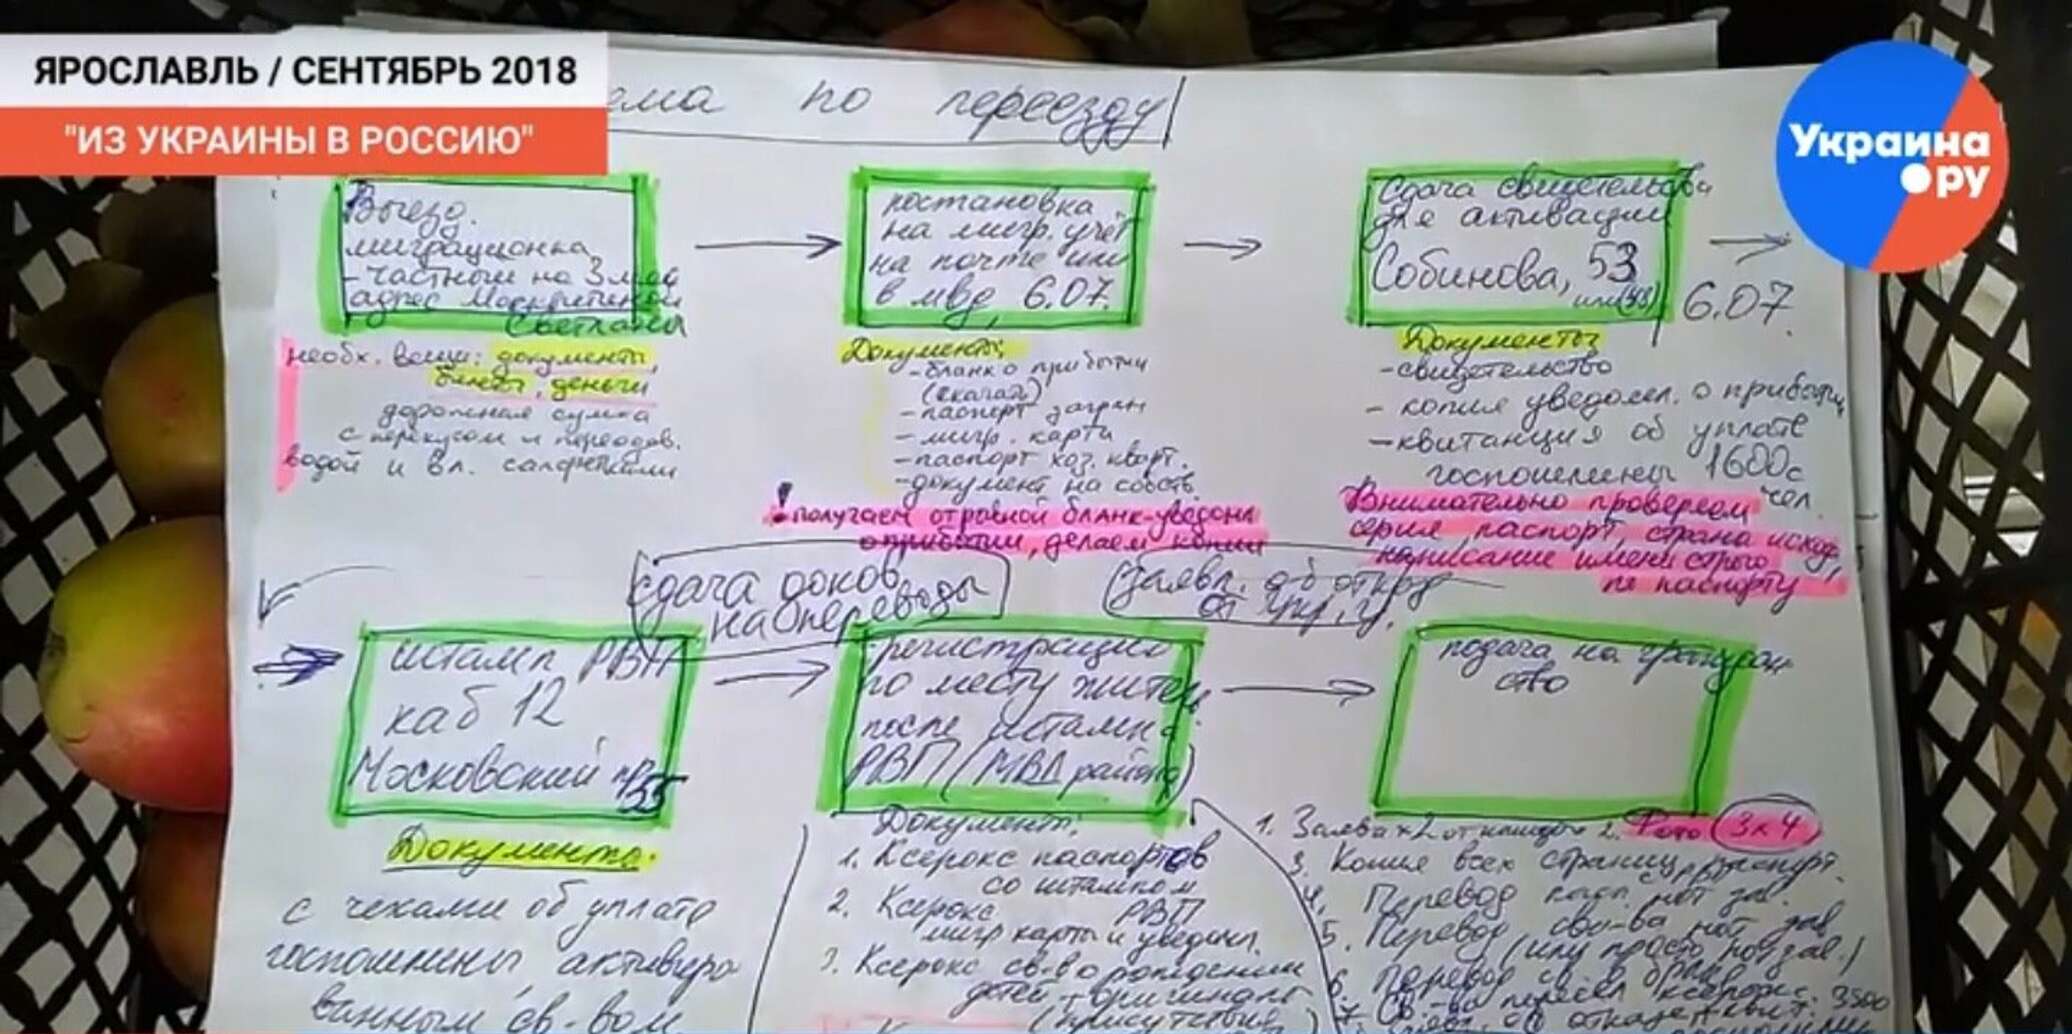 ЯРОСЛАВЛЬ / СЕНТЯБРЬ 2018
"ИЗ УКРАИНЫ В РОССИЮ"
Украина
.ру
ема по переезду
Выезд.
миграционка
- частный на 3 мес
адрес
Светланы
необх. вещи: документы,
билеты, деньги
дорожная сумка
с перекусом и переодев.
водой и вл. салфетками
постановка
на мигр. учёт
на почте или
в мвд, 6.07.
Документы:
- бланк о прибытии
(скачать)
- паспорт загран
- мигр. карта
- паспорт хоз. кварт.
- документ на собств.
! получаем отрывной бланк-уведомл
о прибытии, делаем копии
Сдача свидетельства
для активации
Собинова, 53
или (48)
6.07.
Документы
- свидетельство
- копия уведомл. о прибытии
- квитанция об уплате
госпошлины 1600 с
чел.
Внимательно проверяем
серия, паспорт, страна исход,
написание имени строго
по паспорту
сдача доков
на переводы
Заявл. об
от укр. г.
штамп РВП
каб 12
Московский пр
35
Документы:
с чеками об уплате
госпошлины, активиро
ванным св-вом
регистрация
по месту жител
после штампа
РВП (МВД района)
Документы:
1. Ксерокс паспортов
со штампом
РВП
2. Ксерокс
мигр карты и уведомл.
3. Ксерокс св-во рождении
детей + оригинал
(присутствие
подача на граждан
ство
1. Заява х 2 от каждого 2. Фото (3х4)
3. Копия всех страниц паспорт.
4. Перевод нот зав.
5. Перевод св-ва нот зав
(или просто нот зав.)
6. Перевод св. о браке
7. Св-ва ксерокс.
3500